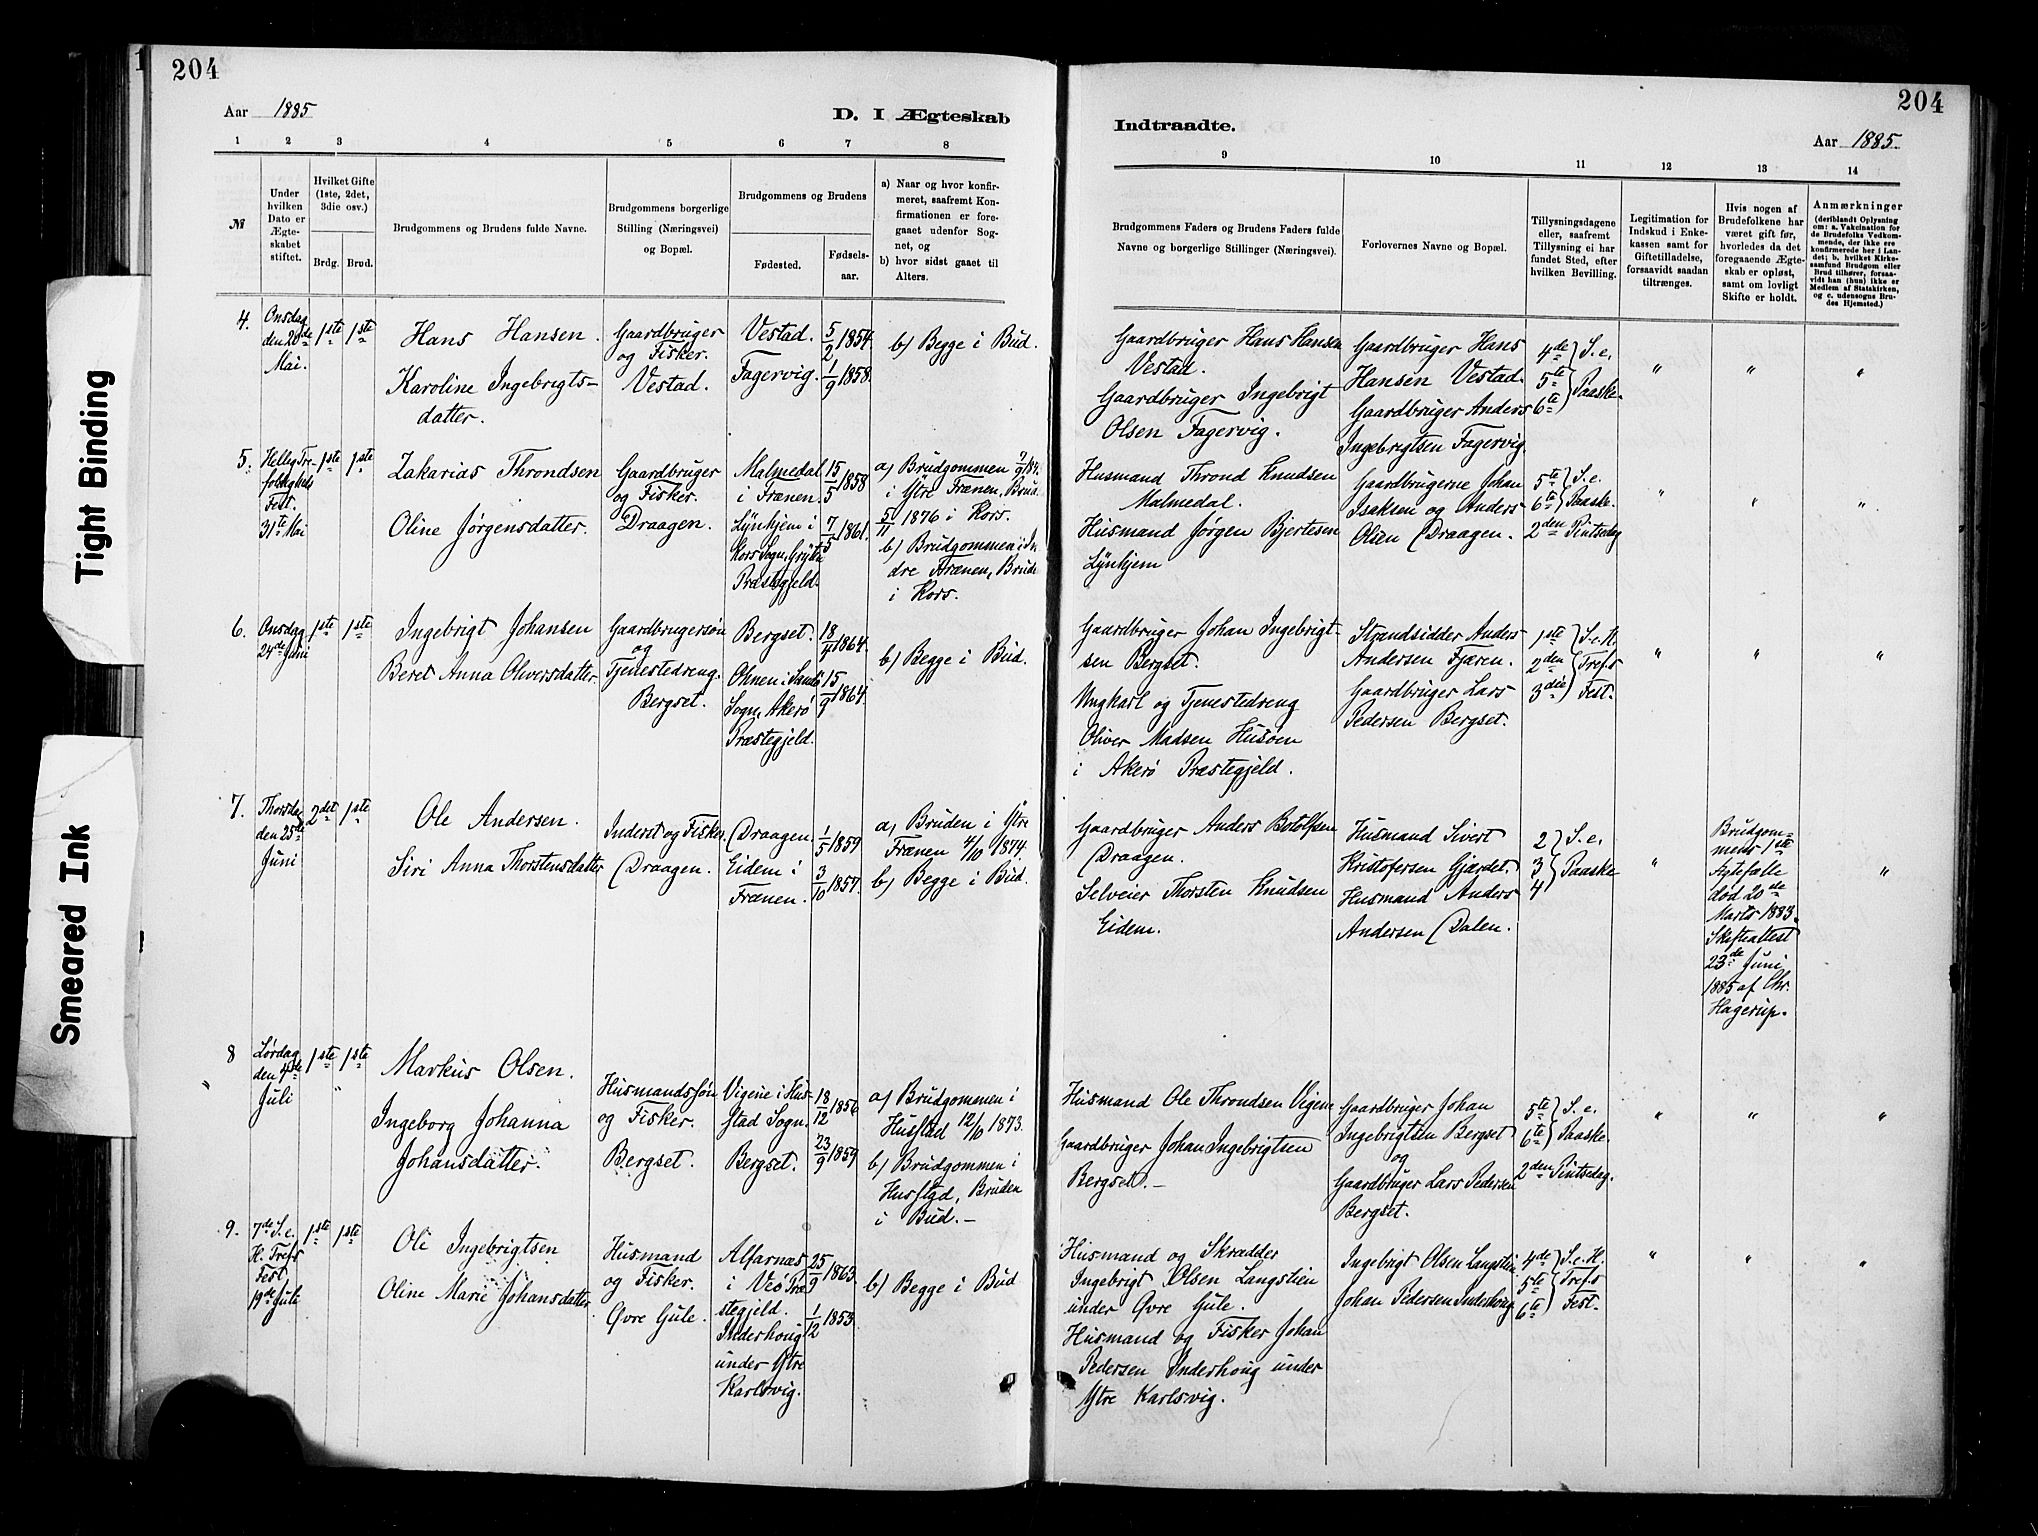 204
204
Aar 1885
D. I Ægteskab
Indtraadte.
Aar 1885.
1 2 3 4 5 6 7 8
9 10 11 12 13 14
№
Under
hvilken
Dato er
Ægte-
skabet
stiftet.
Hvilket Gifte
(1ste, 2det,
3die osv.)
Brdg. Brud.
Brudgommens og Brudens fulde Navne.
Brudgommens borgerlige
Stilling (Næringsvei)
og Bopæl.
Brudgommens og Brudens
Fødested.
Fødsels-
aar.
a) Naar og hvor konfir-
meret, saafremt Kon-
firmationen er fore-
gaaet udenfor Sog-
net, og
b) hvor sidst gaaet til
Alters.
Brudgommens Faders og Brudens Faders fulde
Navne og borgerlige Stillinger (Næringsvei).
Forlovernes Navne og Bopæl.
Tillysningsdagene
eller, saafremt
Tillysning ei har
fundet Sted, efter
hvilken Bevilling.
Legitimation for
Indskud i Enke-
kassen samt for
Giftetilladelse,
forsaavidt saadan
tiltrænges.
Hvis nogen af
Brudefolkene har
været gift før,
hvorledes da det
foregaaende Ægte-
skab er opløst,
samt om lovligt
Skifte er holdt.
Anmærkninger
(deriblandt Oplysning
om: a. Vakcination for
de Brudefolks Vedkom-
mende, der ikke ere
konfirmerede her i Lan-
det; b. hvilket Kirke-
samfund Brudgom eller
Brud tilhører, forsaa-
vidt han (hun) ikke er
Medlem af Statskirken,
og c. udensogns Bru-
des Hjemsted.)
4.
Onsdag
den 20de
Mai.
1ste 1ste
Hans Hansen.
Karoline Ingebrigts-
datter.
Gaardbruger
og Fisker.
Vestad.
Vestad.
Fagervig.
5/2 1854.
1/9 1858.
b) Begge i Bud.
Gaardbruger Hans Hansen
Vestad.
Gaardbruger Ingebrigt
Olsen Fagervig.
Gaardbruger Hans
Hansen Vestad.
Gaardbruger Anders
Ingebrigtsen Fagervig.
4de
5te
6te
S. e.
Paaske.
" " "
5.
Hellig Tre-
foldigheds
Fest.
31te Mai
1ste 1ste
Zakarias Throndsen
Oline Jørgensdatter.
Gaardbruger
og Fisker.
Draagen.
Malmedal
i Frænen.
Lynhjem i
Kors Sogn, Grytten
Præstegjeld.
15/5 1858
7/5 1861.
a) Brudgommen
i Ytre Frænen, Brud.
5/11 1876 i Kors.
b) Brudgommen i In-
dre Frænen, Brude
i Kors.
Husmand Thrond Knudsen
Malmedal.
Husmand Jørgen Bjertesen
Lynhjem
Gaardbrugerne Johan
Isaksen og Anders
Olsen Draagen.
5te
6te
2den Pintsedag
S. e.
Paaske.
" " "
6.
Onsdag
24de Juni
1ste 1ste
Ingebrigt Johansen
Beret Anna Oliversdatter.
Gaardbrugersøn
og
Tjenestedreng.
Bergset.
Bergset.
Ohnen i Sands
Sogn, Akerø
Præstegjeld.
18/4 1864.
15/9 1864.
b) Begge i Bud.
Gaardbruger Johan Ingebrigt-
sen Bergset.
Ungkarl og Tjenestedreng
Oliver Madsen Husøen
i Akerø Præstegjeld.
Strandsidder Anders
Andersen Fjæren.
Gaardbruger Lars
Pedersen Bergset.
1ste
2den
3die
S. e. H.
Tref.s
Fest.
" " "
7.
Thorsdag
den 25de
Juni
2det 1ste
Ole Andersen.
Siri Anna Thorstensdatter
Inderst og Fisker
Draagen.
Draagen
Eidem i
Frænen.
1/5 1859
3/10 1857.
a) Bruden i Ytre
Frænen 4/10 1874.
b) Begge i Bud.
Gaardbruger Anders Botolfsen
Draagen.
Selveier Thorsten Knudsen
Eidem.
Husmand Sivert
Kristofersen Gjærdet.
Husmand Anders
Andersen Dalen.
2
3
4
S. e.
Paaske
"
Brudgom-
mens 1ste
Ægtefælle
død 20de
Marts 1883.
Skifteattest
23de Juni
1885 af Chr.
Hagerup.
"
8
Lørdag
den 4de
Juli
1ste 1ste
"
Markus Olsen.
Ingeborg Johanna
Johansdatter.
Husmandssøn
og Fisker.
Bergset.
Vigene i Hus-
stad Sogn.
Bergset.
18/12 1856
23/9 1859
a) Brudgommen i
Hustad 12/10 1873.
b) Brudgommen i
Hustad, Bruden
i Bud.-
Husmand Ole Throndsen Vigene
Gaardbruger Johan Ingebrigtsen
Bergset.-
Gaardbruger Johan
Ingebrigtsen Bergset
og
Gaardbruger Lars Pedersen
Bergset.
5te
6te
2den Pintsedag.
S. e.
Paaske.
" " "
9.
7de S. e.
H. Tref.s
Fest
19de Juli
1ste 1ste
Oli Ingebrigtsen
Oline Marie Johansdatter
Husmand
og Fisker.
Øvre Gule.
Alfarnæs
i Veø Præ-
stegjeld.
Inderhoug
under Ytre
Karlsvig.
25/9 1863.
1/12 1853
b) Begge i Bud
Husmand og Skrædder
Ingebrigt Olsen Langstien
under Øvre Gule.
Husmand og Fisker Johan
Pedersen Inderhoug under
Ytre Karlsvig.
Ingebrigt Olsen Langstien
Johan Pedersen Inderhoug
4de
5te
6te
S. e. H.
Tref.s
Fest.
" " "
Tight Binding
Smeared Ink